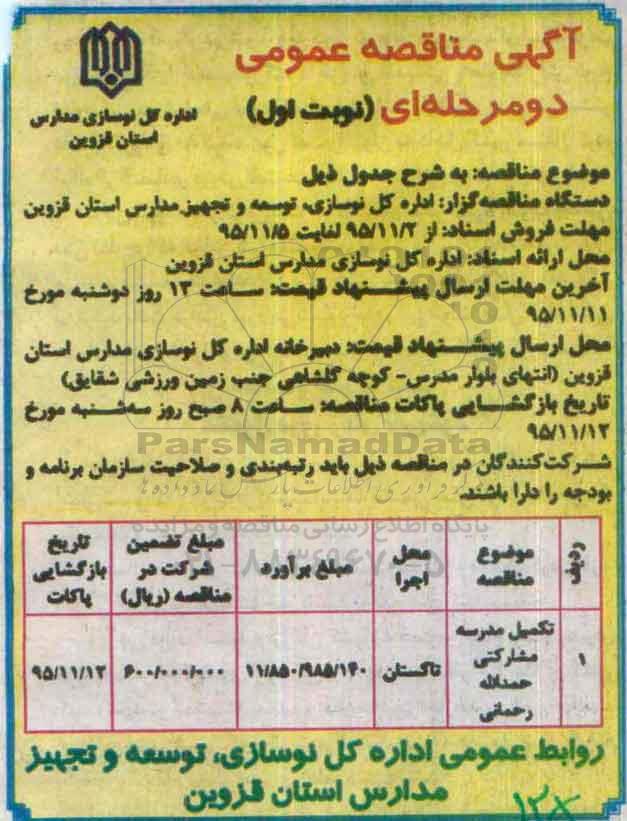 آگهی مناقصه عمومی
دومرحله‌ای (نوبت اول)
اداره کل نوسازی مدارس
استان قزوین
موضوع مناقصه: به شرح جدول ذیل
دستگاه مناقصه‌گزار: اداره کل نوسازی، توسعه و تجهیز مدارس استان قزوین
مهلت فروش اسناد: از ۹۵/۱۱/۲ لغایت ۹۵/۱۱/۵
محل ارائه اسناد: اداره کل نوسازی مدارس استان قزوین
آخرین مهلت ارسال پیشنهاد قیمت: ساعت ۱۳ روز دوشنبه مورخ
۹۵/۱۱/۱۱
محل ارسال پیشنهاد قیمت: دبیرخانه اداره کل نوسازی مدارس استان
قزوین (انتهای بلوار مدرس- کوچه گلشاهی جنب زمین ورزشی شقایق)
تاریخ بازگشایی پاکات مناقصه: ساعت ۸ صبح روز سه‌شنبه مورخ
۹۵/۱۱/۱۲
ParsNamadData
شرکت‌کنندگان در مناقصه ذیل باید رتبه‌بندی و صلاحیت سازمان برنامه و
بودجه را دارا باشند.
پایگاه اطلاع رسانی مناقصه و مزایده
ردیف
موضوع
مناقصه
محل
اجرا
مبلغ برآورد
مبلغ تضمین
شرکت در
مناقصه (ریال)
تاریخ
بازگشایی
پاکات
۱
تکمیل مدرسه
مشارکتی
حمدالله
رحمانی
تاکستان
۱۱/۸۵۰/۹۸۵/۱۴۰
۶۰۰/۰۰۰/۰۰۰
۹۵/۱۱/۱۲
روابط عمومی اداره کل نوسازی، توسعه و تجهیز
مدارس استان قزوین
۱۳۸